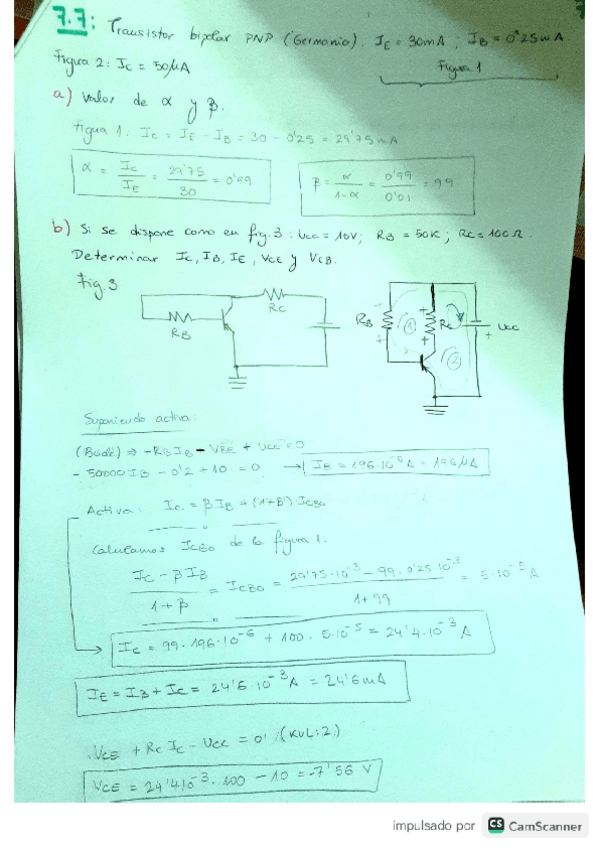 7.7: Transistor bipolar PNP (Germanio). IE = 30mA ; IB = 0'25mA.
Figura 2: Ic = 50μA
Figura 1
a) valor de α y β.
Figura 1: Ic = IE - IB = 30 - 0'25 = 29'75 mA
α = Ic/IE = 29'75/30 = 0'99
β = α/1-α = 0'99/0'01 = 99
b) Si se dispone como en fig.3 : Vcc = 10V; RB = 50K ; Rc = 100Ω.
Determinar Ic, IB, IE, VCE y VCB.
Fig.3
Rc
RB
RB
1
Rc
Vcc
2
Suponiendo activa:
(Bucle) ⇒ -RBIB - VBE + Vcc = 0
- 50000 IB - 0'2 + 10 = 0 → IB = 196·10^-6 A = 196μA
Activa: Ic = βIB + (1+β) ICBO
Calculamos ICBO de la figura 1.
Ic - βIB/1+β = ICBO = 29'75·10^-3 - 99·0'25·10^-3/1+99 = 5·10^-5 A
Ic = 99·196·10^-6 + 100·5·10^-5 = 24'4·10^-3 A
IE = IB + Ic = 24'6·10^-3 A = 24'6mA
VCE + Rc Ic - Vcc = 0 (KVL:2)
VCE = 24'4·10^-3·100 - 10 = -7'56 V
impulsado por CS CamScanner